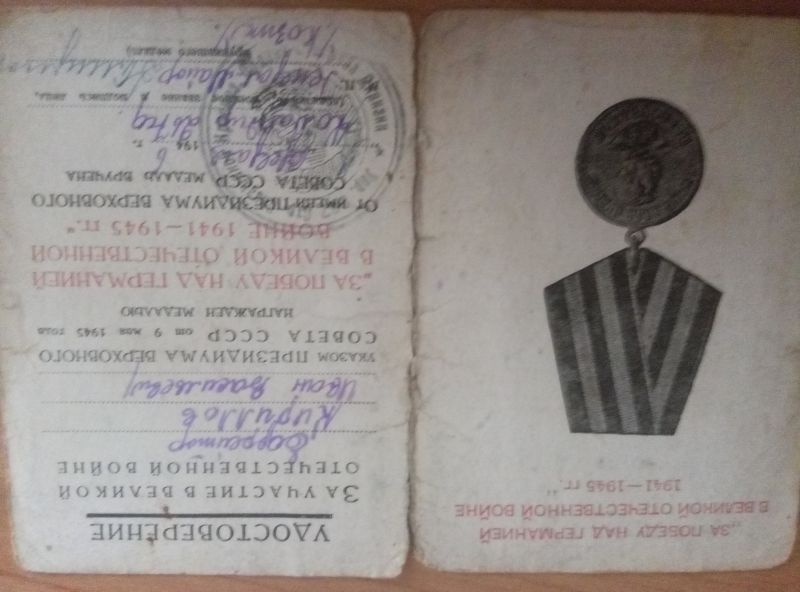 „ЗА ПОБЕДУ НАД ГЕРМАНИЕЙ
В ВЕЛИКОЙ ОТЕЧЕСТВЕННОЙ ВОЙНЕ
1941—1945 гг."
УДОСТОВЕРЕНИЕ
ЗА УЧАСТИЕ В ВЕЛИКОЙ
ОТЕЧЕСТВЕННОЙ ВОЙНЕ
Ефрейтор
Кириллов
Иван Васильевич
УКАЗОМ ПРЕЗИДИУМА ВЕРХОВНОГО
СОВЕТА СССР от 9 мая 1945 года
НАГРАЖДЕН МЕДАЛЬЮ
„ЗА ПОБЕДУ НАД ГЕРМАНИЕЙ
В ВЕЛИКОЙ ОТЕЧЕСТВЕННОЙ
ВОЙНЕ 1941—1945 гг."
От имени ПРЕЗИДИУМА ВЕРХОВНОГО
СОВЕТА СССР МЕДАЛЬ ВРУЧЕНА
194 6 г.
Командир
подпись лица,
Генерал-майор
вручившего медаль)